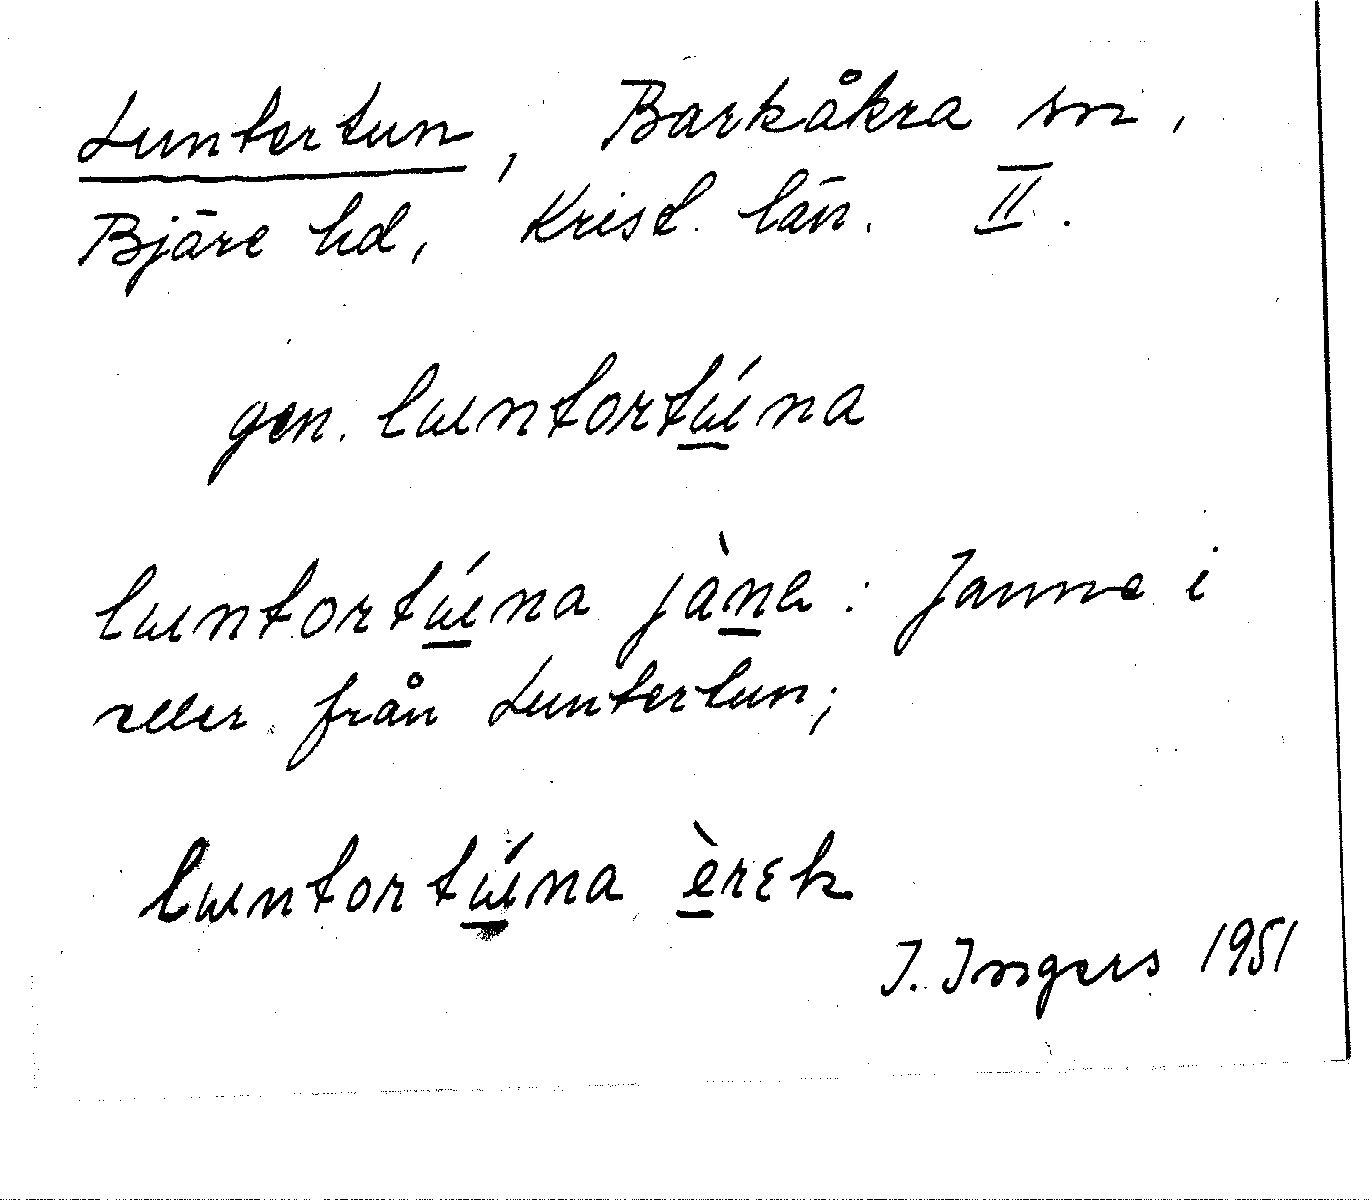 Luntertun, Barkåkra sn,
Bjäre hd, Krist. län. II.
gen. lɯntortɯ́na
lɯntortɯ́na jàna: Janne i
eller från Luntertun;
lɯntortɯ́na èrɛk
I. Ingers 1951